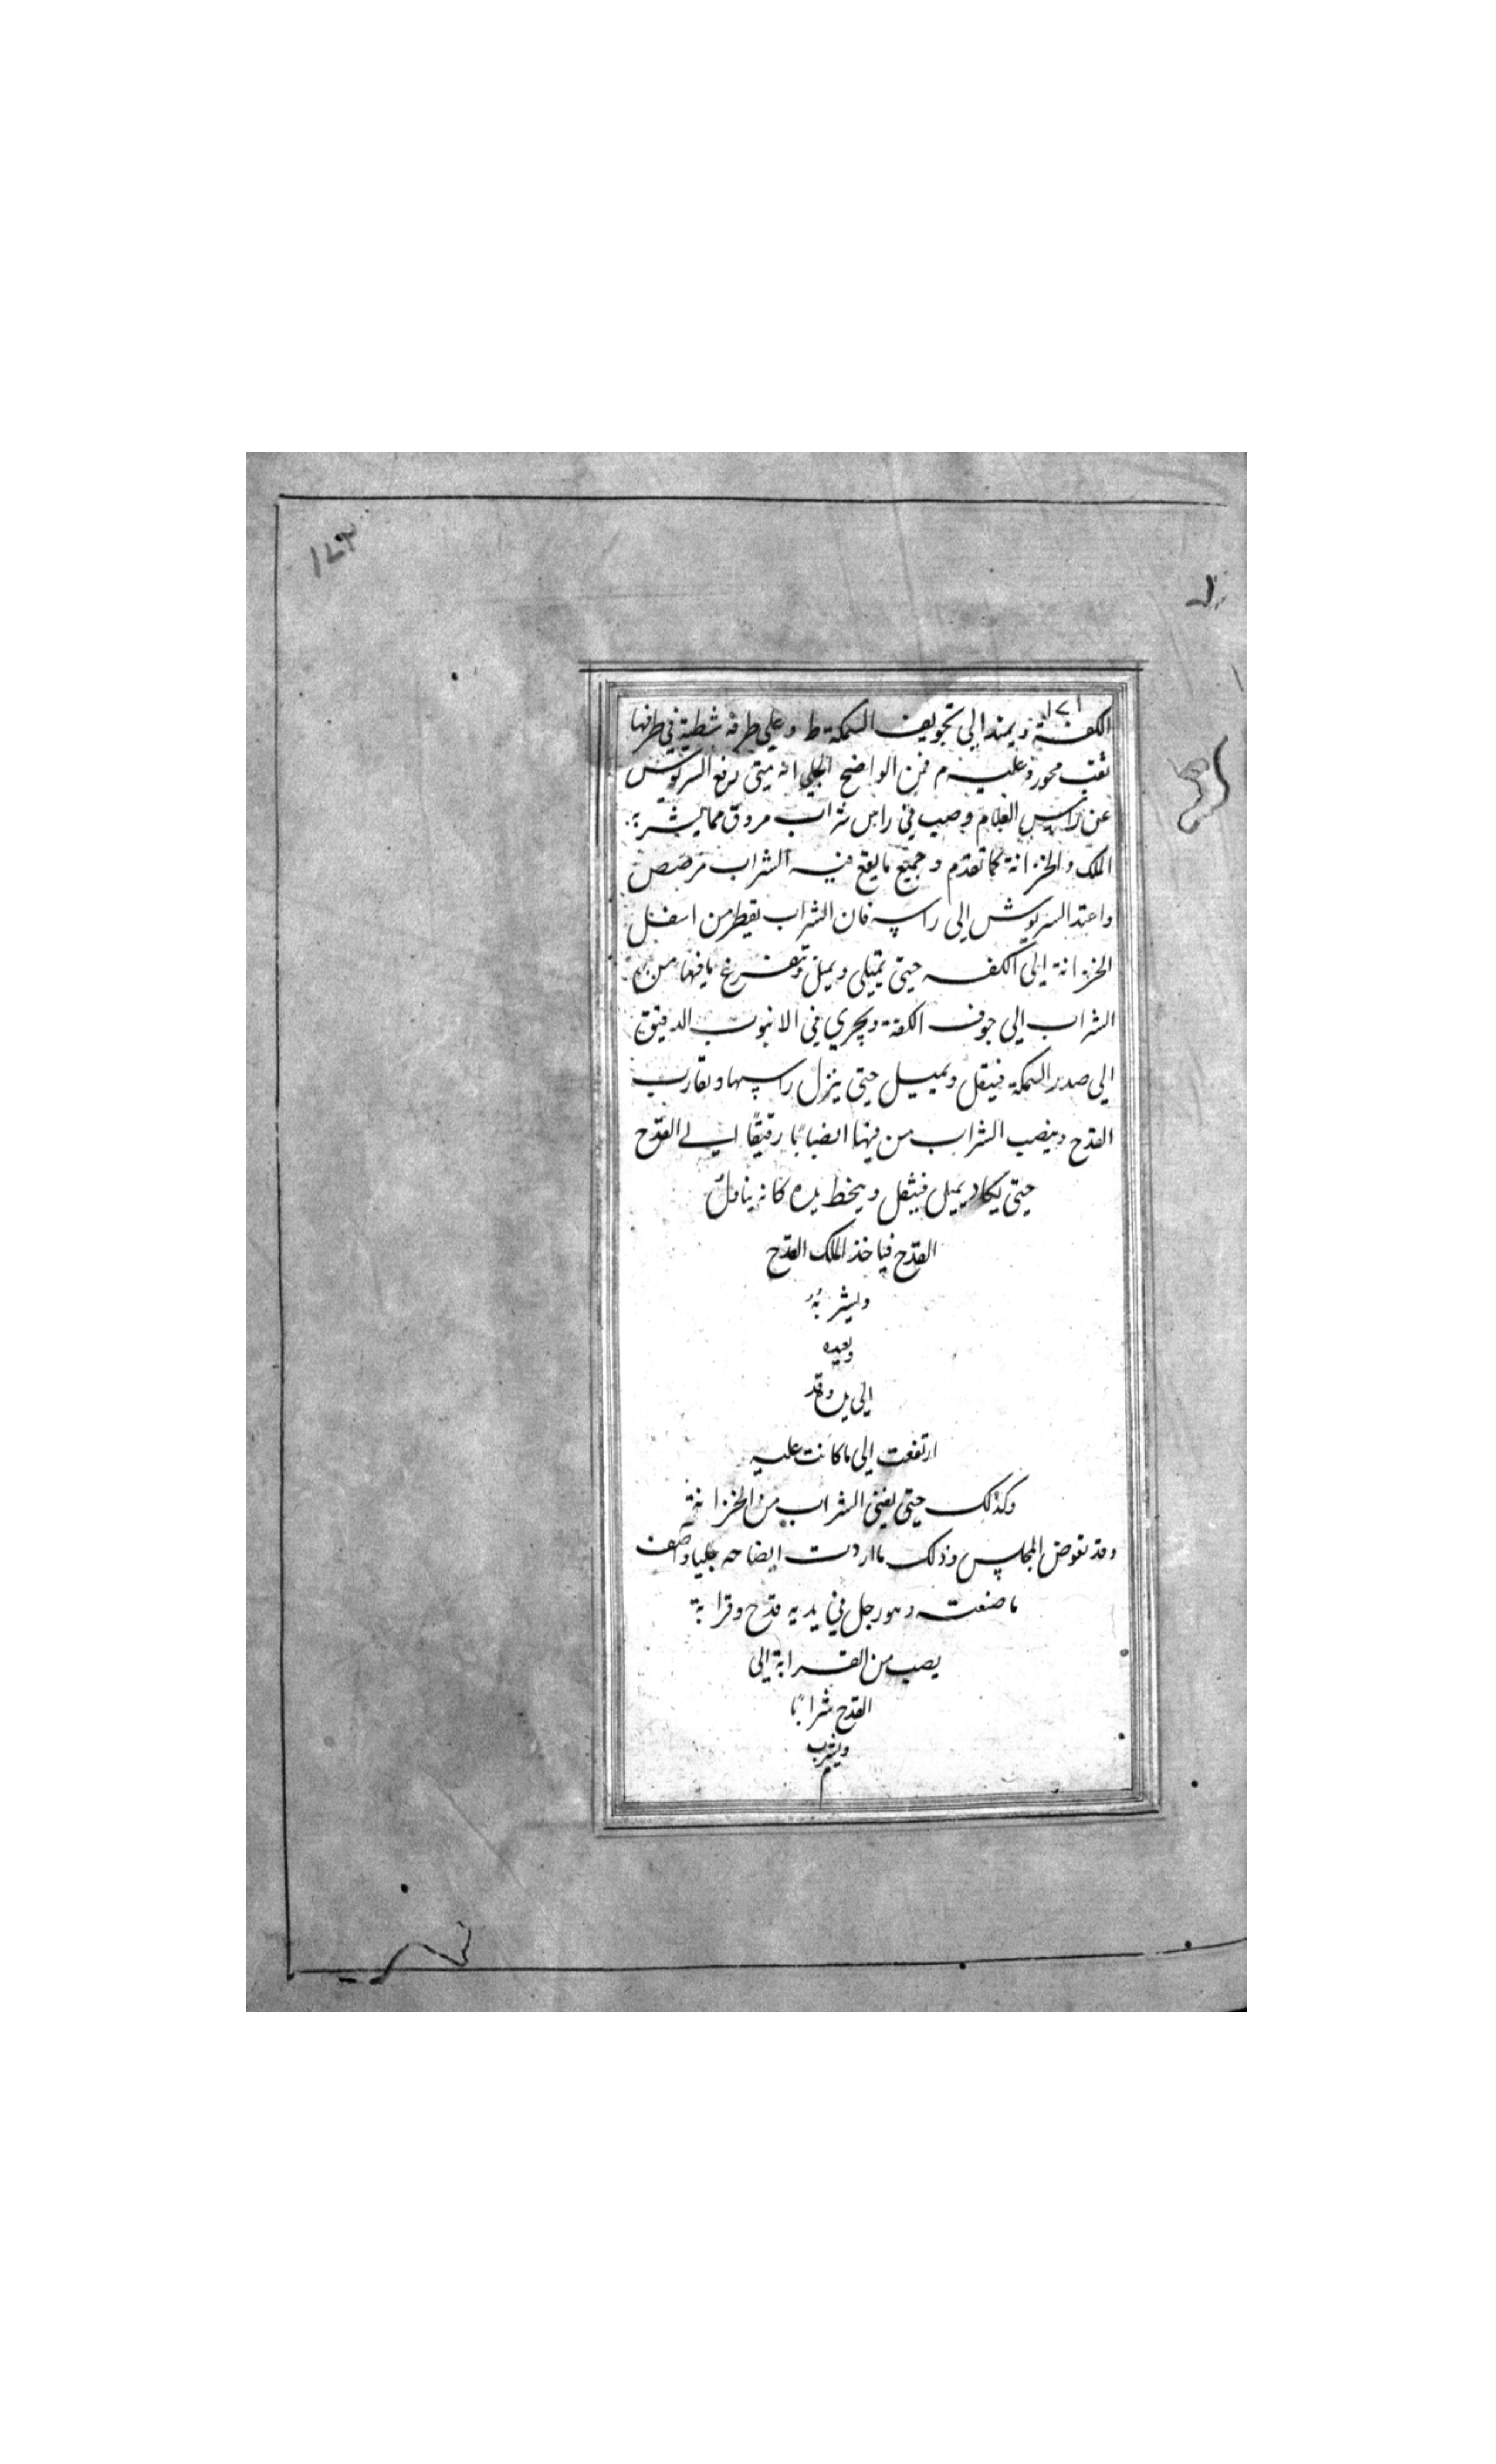 ١٧٣
١٧١
الكفة ويمتد الى تجويف السمكة ط وعلى طرفه شظية في طرفها
ثقب محور وعليه م فمن الواضح الجلي انه متى رفع السرپوش
عن راس الغلام وصب في راس شراب مروق مما يشربه
الملك والخزانة كما تقدم وجميع ما يقع فيه الشراب مرصص
واعتد السرپوش الى راسه فان الشراب يقطر من اسفل
الخزانة الى الكفه حتى تمتلى ويميل وتتفرغ ما فيها من
الشراب الى جوف الكفة ويجري في الانبوب الدقيق
الى صدر السمكة فيثقل ويميل حتى ينزل راسها وتقارب
القدح وينصب الشراب من فيها انصبابًا رقيقًا الى القدح
حتى يكاد يميل فيثقل وينحط يده كانه يناول
القدح فياخذ الملك القدح
ويشربه
ويعيده
الى يده وقد
ارتفعت الى ما كانت عليه
وكذلك حتى يفنى الشراب من الخزانة
وقد تقوض المجلس وذلك ما اردت ايضاحه جليا واصف
ما صنعته وهو رجل في يديه قدح وقرابة
يصب من القرابة الى
القدح شرابًا
ويشرب
م